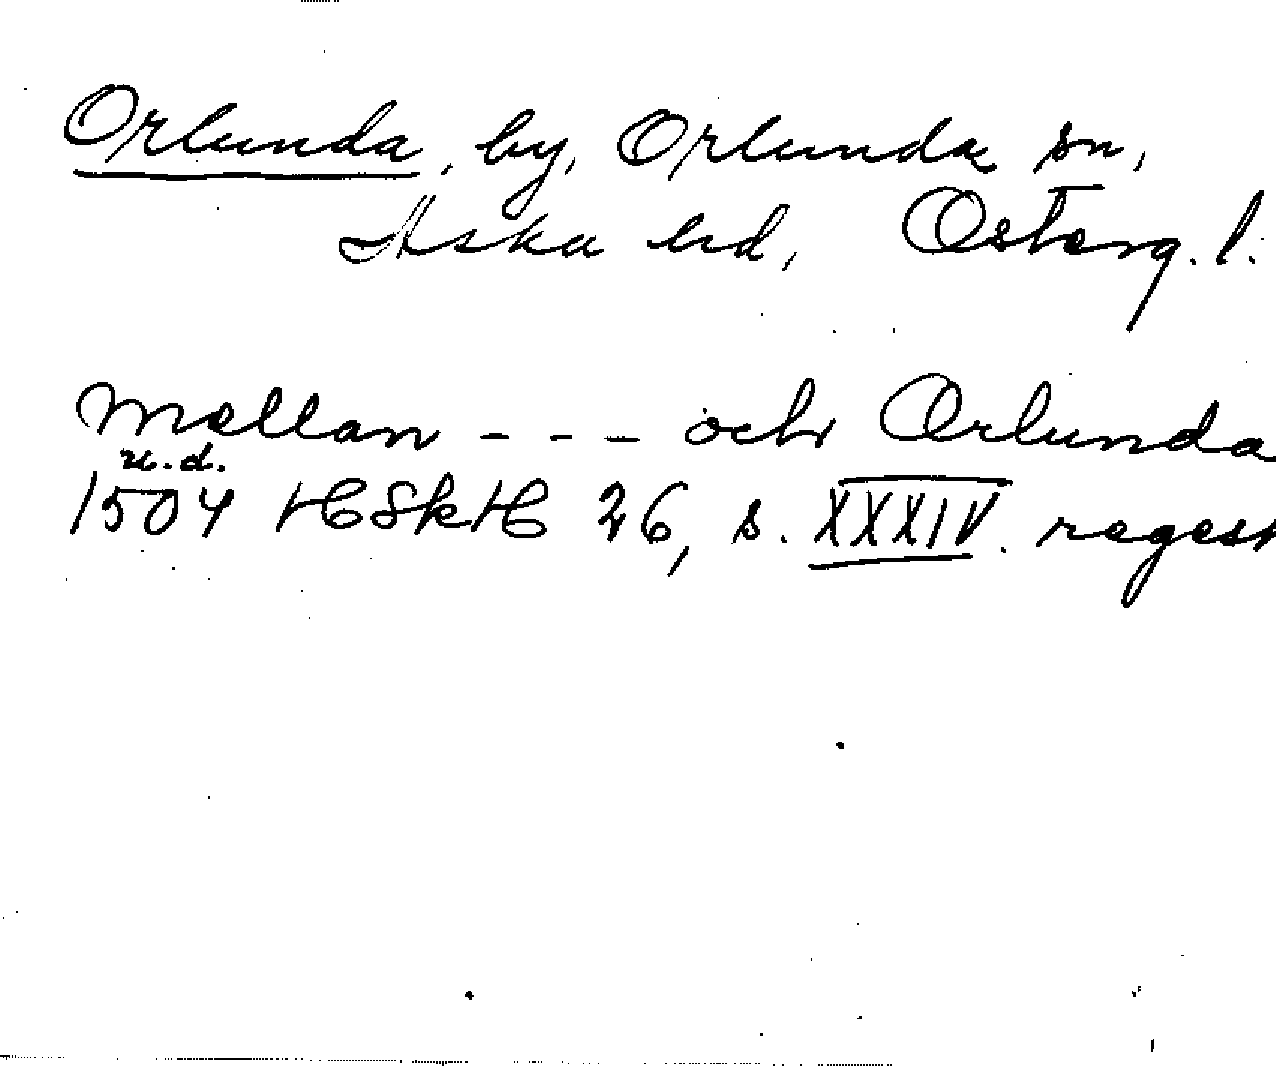 Orlunda, by, Orlunda sn,
Aska hd, Österg. l.
Mellan - - - och Orlunda
u.d.
1504 HSkH 26, s. XXXIV. regest